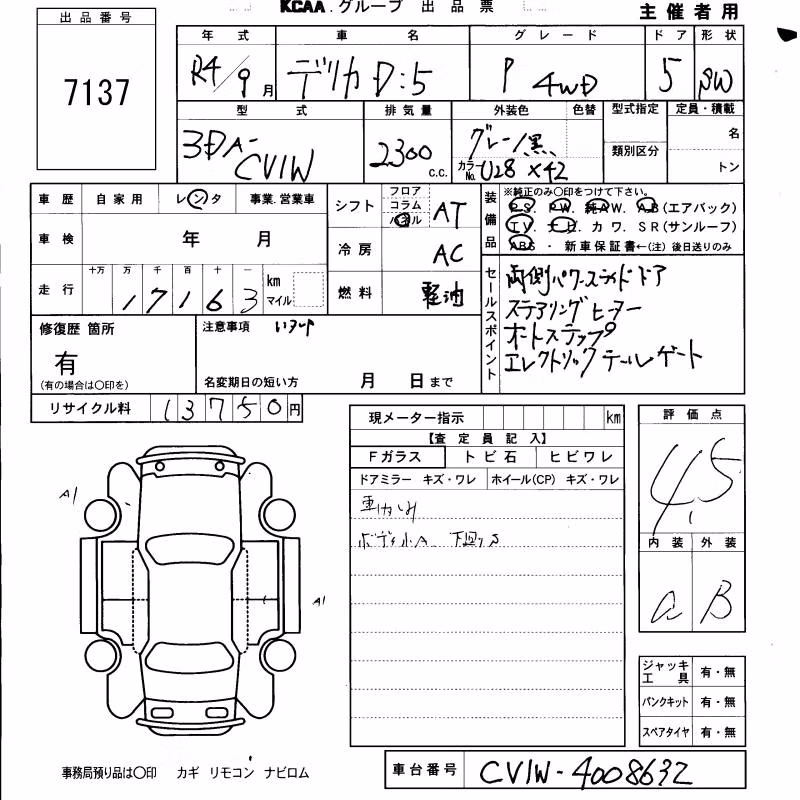 KCAA. グループ 出品票
主催者用
出品番号
7137
年式 車名 グレード ドア 形状
R4/9月 デリカD:5 P 4WD 5 SW
型式 排気量 外装色 色替 型式指定 定員・積載
3DA-CV1W 2300 c.c. グレー/黒 カラーNo. U28 X42 類別区分 名 トン
車歴 自家用 レンタ 事業.営業車
シフト フロア コラム パネル AT
装備品 ※純正のみ〇印をつけて下さい。
PS. PW. 純AW. AB(エアバック)
TV. ナビ. カワ. SR(サンルーフ)
ABS・新車保証書←(注)後日送りのみ
車検 年 月
冷房 AC
走行 十万 万 千 百 十 一
17163 km マイル
燃料 軽油
セールスポイント
両側パワースライドドア
ステアリングヒーター
オートステップ
エレクトリックテールゲート
修復歴 箇所
有
(有の場合は〇印を)
注意事項
名変期日の短い方 月 日まで
リサイクル料 13750円
現メーター指示 km
【査定員記入】
Fガラス トビ石 ヒビワレ
ドアミラー キズ・ワレ ホイール(CP) キズ・ワレ
ボディ小A 下廻りS
評価点
4.5
内装 外装
a B
A1
A1
ジャッキ工具 有・無
パンクキット 有・無
スペアタイヤ 有・無
事務局預り品は〇印 カギ リモコン ナビロム
車台番号 CV1W-4008632